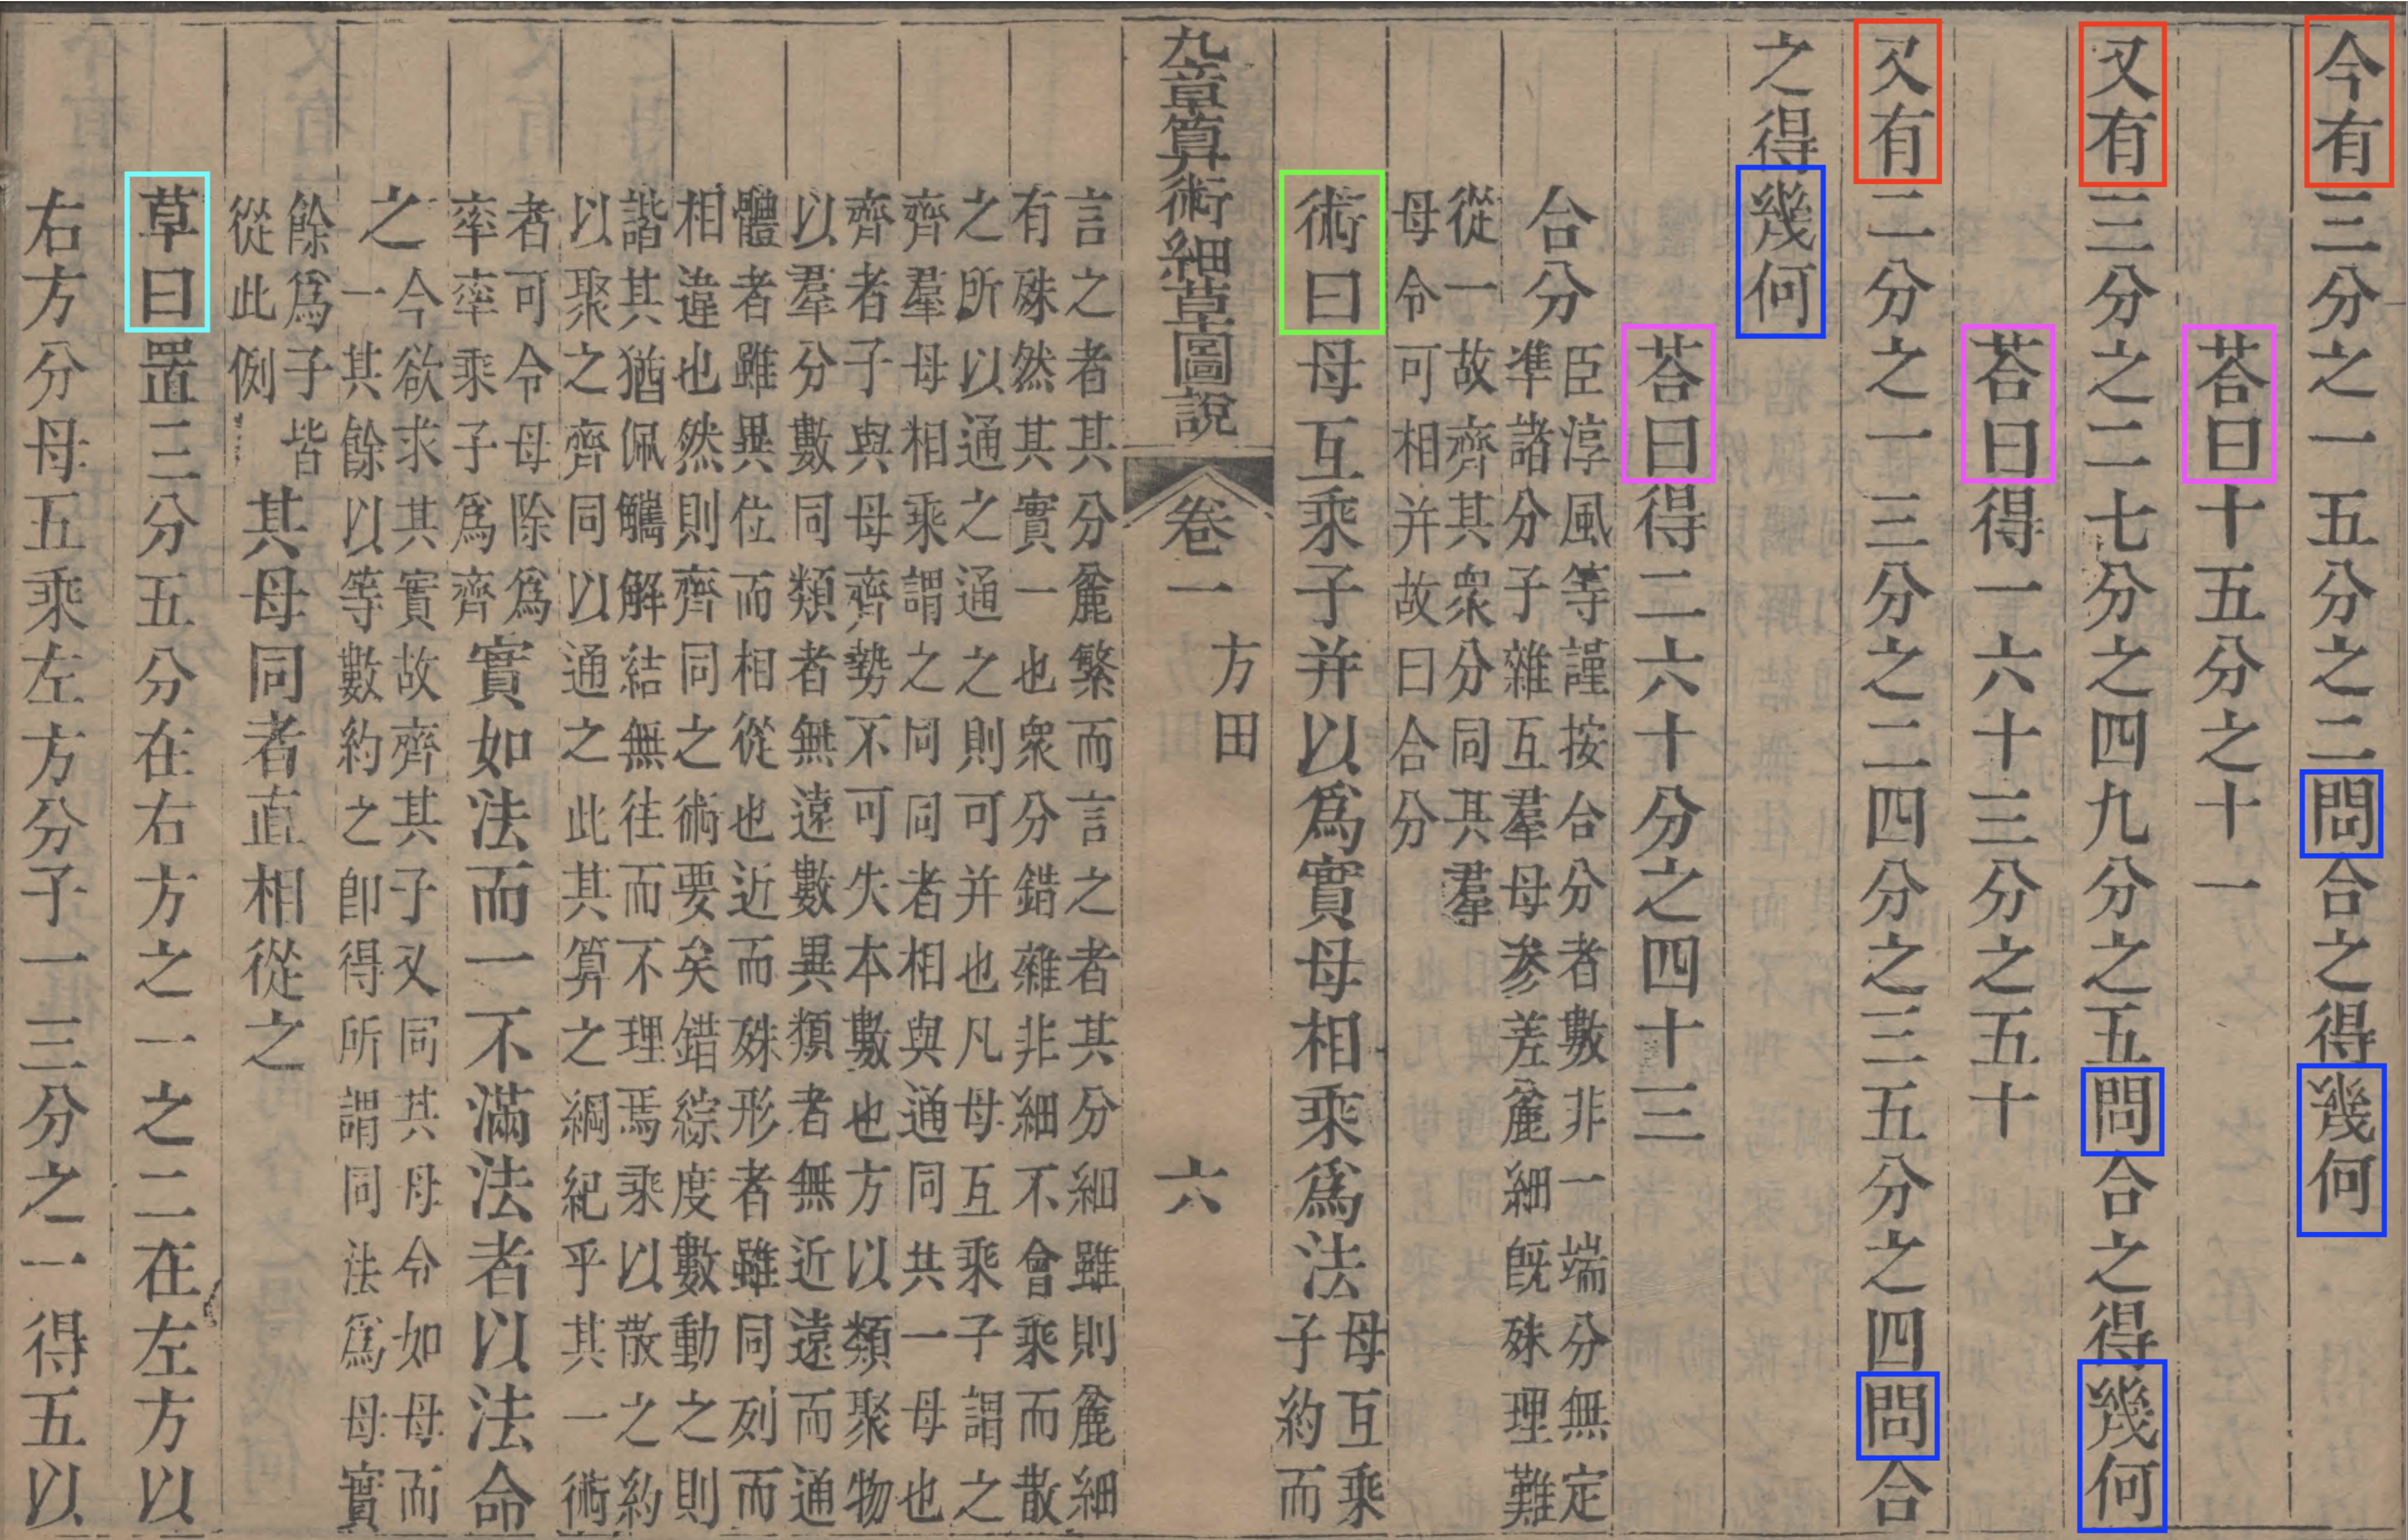 今有三分之一五分之二問合之得幾何
荅曰十五分之十一
又有三分之二七分之四九分之五問合之得幾何
荅曰得一六十三分之五十
又有二分之一三分之二四分之三五分之四問合
之得幾何
荅曰得二六十分之四十三
合分臣淳風等謹按合分者數非一端分無定
準諸分子雜互羣母參差麄細旣殊理難
從一故齊其衆分同其羣
母令可相并故曰合分
術曰母互乘子并以爲實母相乘爲法母互乘
子約而
九章算術細草圖說 卷一 方田 六
言之者其分麄繁而言之者其分細雖則麄細
有殊然其實一也衆分錯雜非細不會乘而散
之所以通之通之則可并也凡母互乘子謂之
齊羣母相乘謂之同同者相與通同共一母也
齊者子與母齊勢不可失本數也方以類聚物
以羣分數同類者無遠數異類者無近遠而通
體者雖異位而相從也近而殊形者雖同列而
相違也然則齊同之術要矣錯綜度數動之則
諧其猶佩觿解結無往而不理焉乘以散之約
以聚之齊同以通之此其算之綱紀乎其一術
者可令母除爲
率率乘子爲齊
實如法而一不滿法者以法命
之今欲求其實故齊其子又同其母令如母而
一其餘以等數約之卽得所謂同法爲母實
餘爲子皆
從此例
其母同者直相從之
草曰置三分五分在右方之一之二在左方以
右方分母五乘左方分子一三分之一得五以